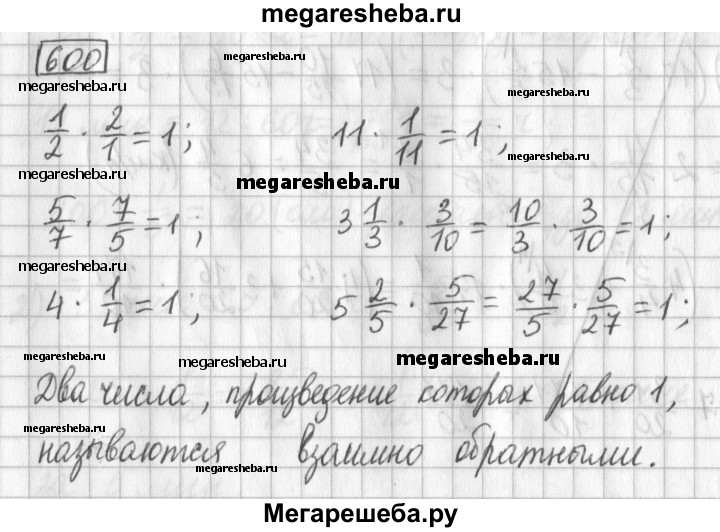 megaresheba.ru
600
megaresheba.ru
megaresheba.ru megaresheba.ru
1/2 · 2/1 = 1; 11 · 1/11 = 1;
megaresheba.ru megaresheba.ru
megaresheba.ru
5/7 · 7/5 = 1; 3 1/3 · 3/10 = 10/3 · 3/10 = 1;
megaresheba.ru
4 · 1/4 = 1; 5 2/5 · 5/27 = 27/5 · 5/27 = 1;
megaresheba.ru megaresheba.ru megaresheba.ru
Два числа, произведение которых равно 1,
megaresheba.ru
называются взаимно обратными.
megaresheba.ru
Мегарешеба.ру